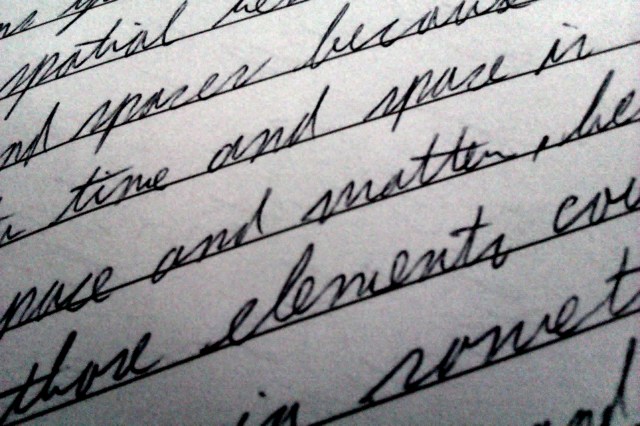 spatial
nd spaces because
time and space is
pace and matter, be
those elements cou
in somet
nd